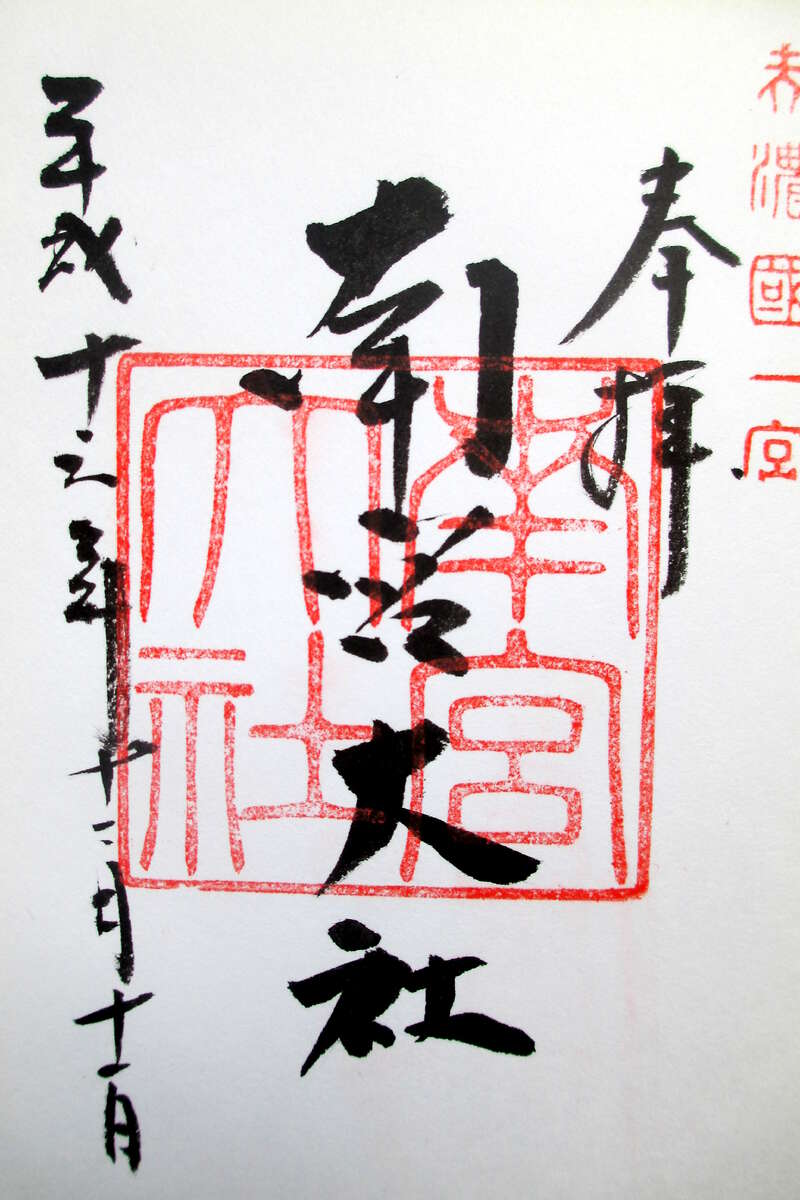 美濃國一宮
奉拝
南宮大社
南宮
大社
平成十六年十二月十一日